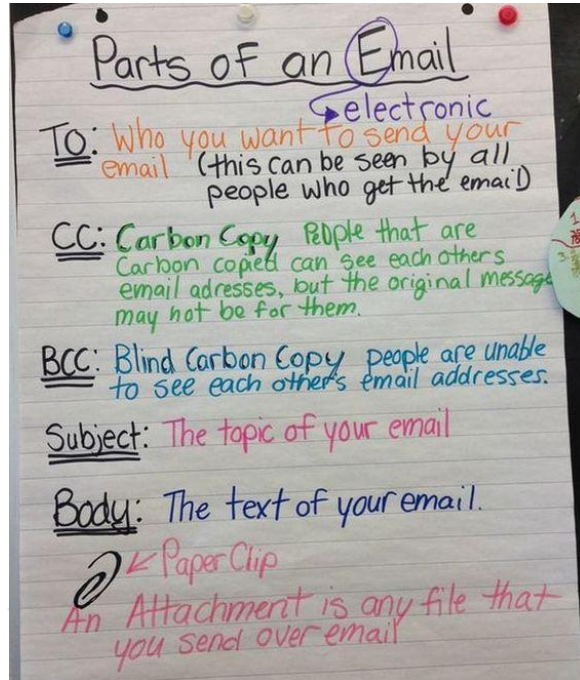 Parts of an Email
electronic
TO: Who you want to send your
email (this can be seen by all
people who get the email)
CC: Carbon Copy People that are
Carbon copied can see each others
email adresses, but the original message
may not be for them.
BCC: Blind Carbon Copy people are unable
to see each other's email addresses.
Subject: The topic of your email
Body: The text of your email.
Paper Clip
An Attachment is any file that
you send over email